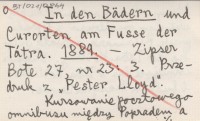 In den Bädern und
Curorten am Fusse der
Tátra. 1884. — Zipser
Bote 27, nr 23: 3. Prze-
druk z „Pester Lloyd".
Kursowanie pocztowego
omnibusu między Popradem a